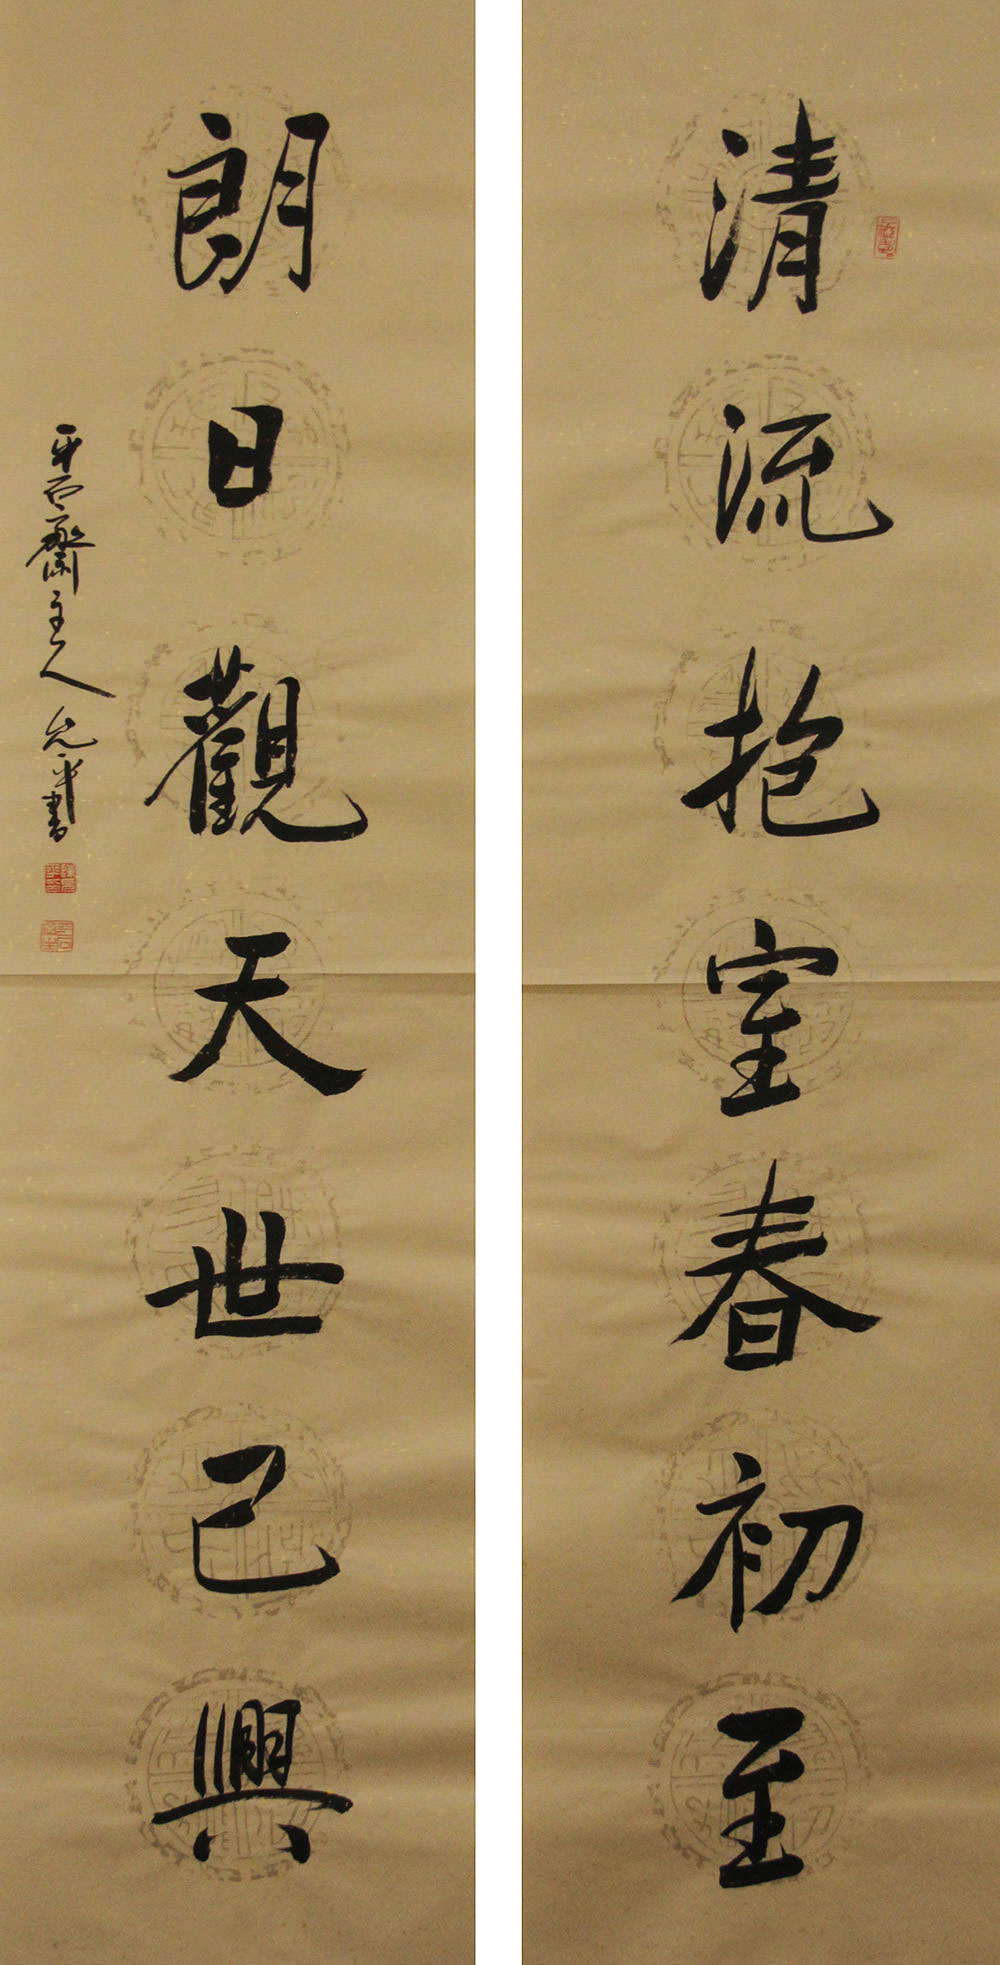 清流抱室春初至
朗日觀天世已興
平石齋主人允平書